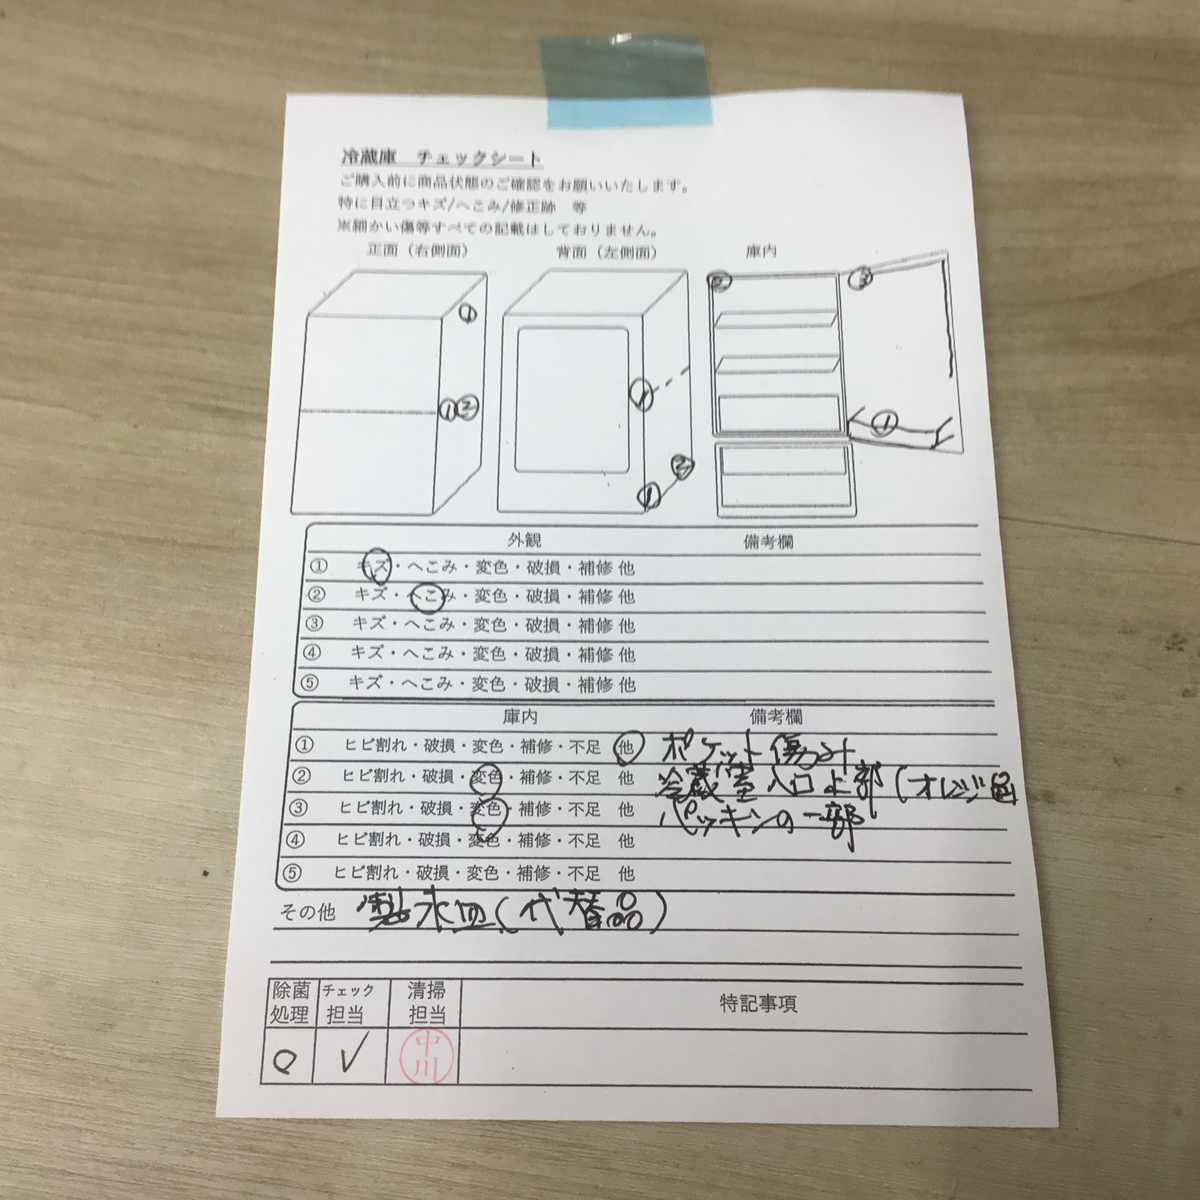 冷蔵庫　チェックシート
ご購入前に商品状態のご確認をお願いいたします。
特に目立つキズ/へこみ/修正跡　等
※細かい傷等すべての記載はしておりません。
正面（右側面）　背面（左側面）　庫内
① ① ② ① ① ② ② ③ ①
外観　備考欄
① キズ・へこみ・変色・破損・補修 他
② キズ・へこみ・変色・破損・補修 他
③ キズ・へこみ・変色・破損・補修 他
④ キズ・へこみ・変色・破損・補修 他
⑤ キズ・へこみ・変色・破損・補修 他
庫内　備考欄
① ヒビ割れ・破損・変色・補修・不足　他　ポケット傷み
② ヒビ割れ・破損・変色・補修・不足　他　冷蔵室入口上部(オレンジ色
③ ヒビ割れ・破損・変色・補修・不足　他　パッキンの一部
④ ヒビ割れ・破損・変色・補修・不足　他
⑤ ヒビ割れ・破損・変色・補修・不足　他
その他　製氷皿(代替品)
除菌処理　チェック担当　清掃担当　特記事項
中川